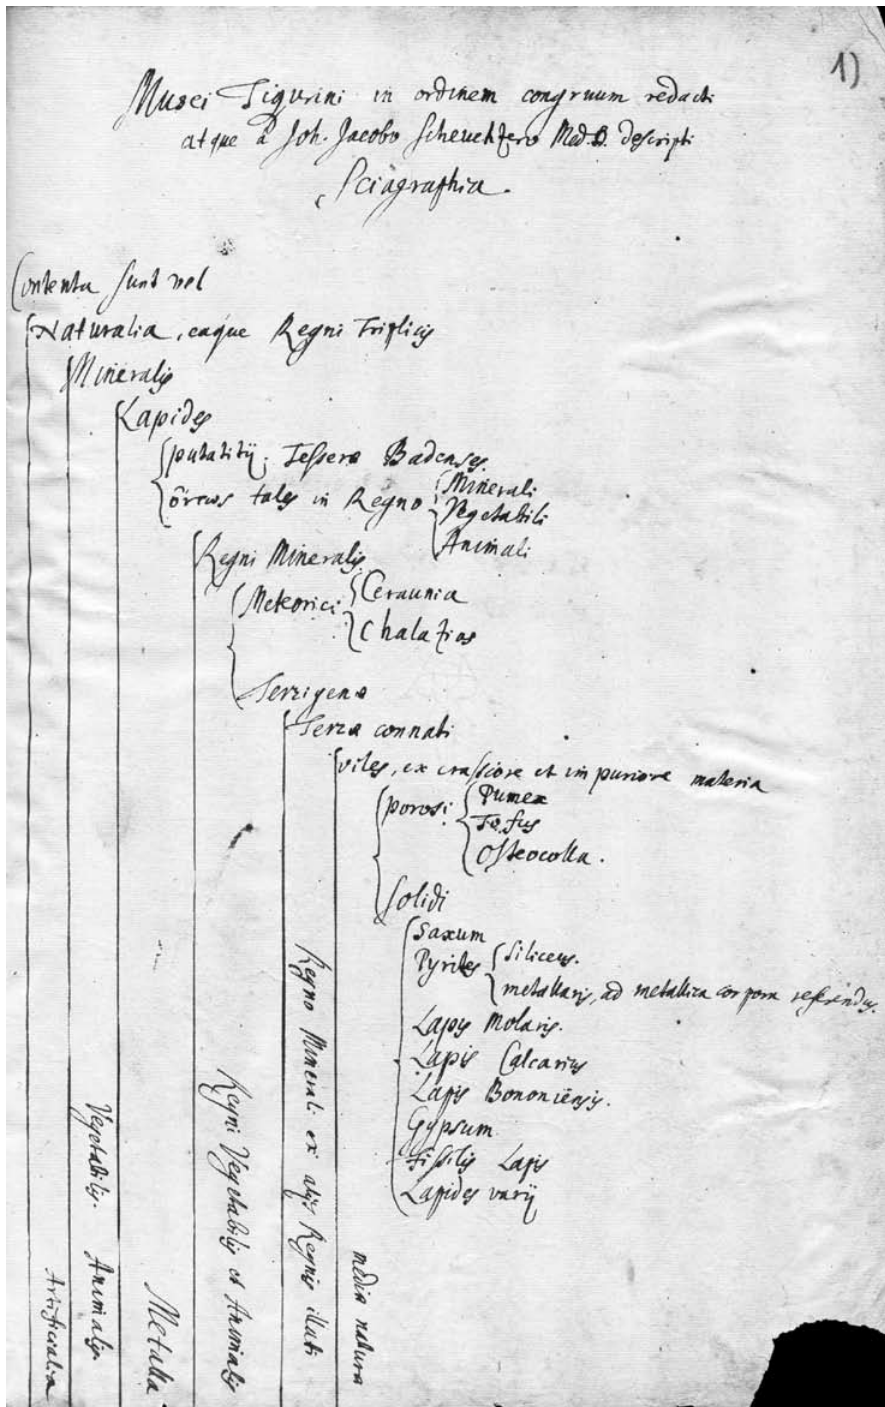 1)
Musei Tigurini in ordinem congruum redacti
atque à Joh. Jacobo Scheuchzero Med. D. descripti
Sciagraphia.
Contenta sunt vel
Naturalia, eaque Regni Triplicis
Mineralis
Lapides
putatitij. Tesseræ Badenses.
ὄντως tales in Regno Minerali
Vegetabili
Animali
Regni Mineralis
Meteorici Ceraunia
Chalazias
Terrigenæ
Terræ connati
viles, ex crassiore et impuriore materia
porosi Pumex
Tofus
Osteocolla.
Solidi
Saxum
Pyrites Siliceus.
metallaris, ad metallica corpora referendus.
Lapis Molaris.
Lapis Calcarius
Lapis Bononiensis.
Gypsum
Fissilis Lapis
Lapides varij
media natura
Regno Minerali ex alijs Regnis illati
Regni Vegetabilis et Animalis
Metalla
Vegetabilis. Animalis.
Artificialia